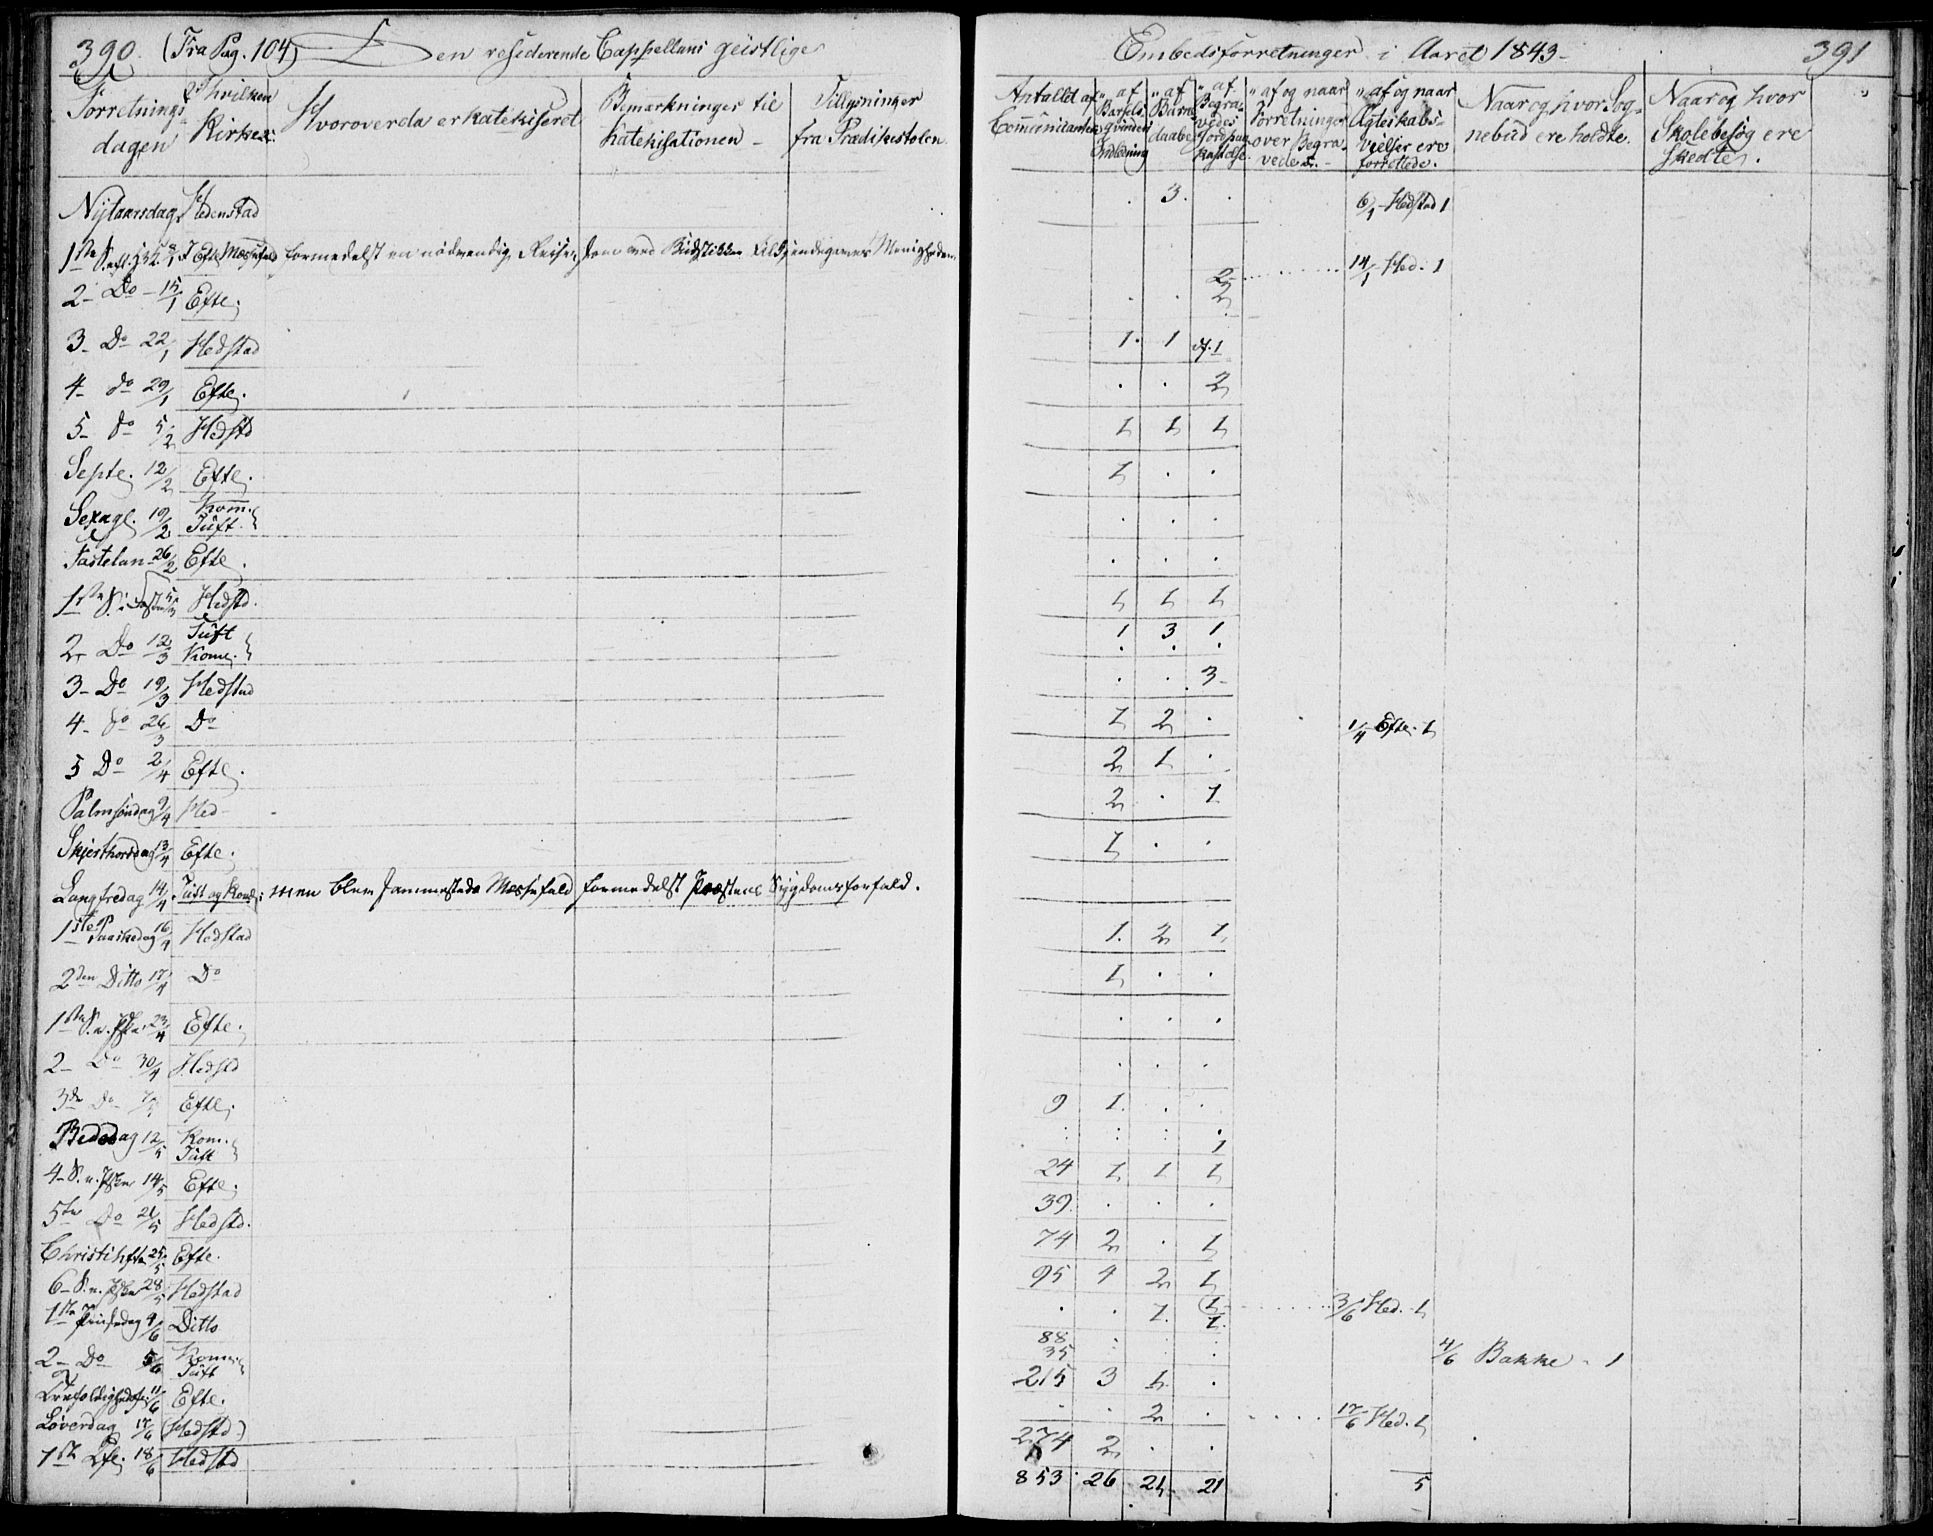 390. (Fra Pag. 104) Den residerende Cappellans geistlige
Embedsforretninger i Aaret 1843. 391
Forretnings dagen
I hvilken Kirke:
Hvorover da er katekiseret
Bemærkninger til Katekisationen
Tillysninger fra Prædikestolen
Antallet af Communicanter
„ af Barsels Qvinders Indledning
„ af Barne daabe
„ af Begravedes Jordpaakastelse
„ af og naar Forretninger over Begravede
„ af og naar Ægteskabs- vielser ere forrettede.
Naar og hvor Sognebud ere holdte.
Naar og hvor Skolebesøg ere skedte.
Nytaarsdag Hedenstad . 3. . 6/1 Hedstad 1
Efte Messefald formedelst en nödvendig Reise, som ved Budstikken Menigheden
2 14/1 Hed. 1
2 Do 15/1 Efte. . . 2
3 Do 22/1 Hedstad 1. 1 1
4 do 29/1 Efte. . . 2
5 do 5/2 Hedstd 1 1 1
Septe. 12/2 Efte. 1 . .
Sexage. 19/2 Kom. Tuft. . . .
Fastelan 26/2 Efte. . . .
1ste S. i Fasten 5/3 Hedstd. 1 1 1
2 Do 12/3 Tuft 1 3 1
Kome. . . .
3 Do 19/3 Hedstad . . 3
4 do 26/3 Do 1 2 . 1/4 Efte. 1
5 Do 2/4 Efte. 2 1 .
Palmsöndag 9/4 Hed 2 . 1
Skjærthorsdag 13/4 Efte. 1 . .
Langfredag 14/4 Tuft og Kom: men blev sammesteds Messefald formedelst Præstens Sygdomsforfald.
1ste Paaskedag 16/4 Hedstad 1. 2 1
2den Ditto 17/4 Do 1 . .
1ste S. e. Pske 23/4 Efte. . . .
2 Do 30/4 Hedstd . . .
3de Do 7/5 Efte. 9 1. . .
Bededag 12/5 Kom. Tuft : : : 1
4 S. e. Psken 14/5 Efte. 24 1 1 1
5te Do 21/5 Hedstd. 39. . . .
Christihfte 25/5 Efte. 74 2 . 1
6 S. e. Psken 28/5 Hedstad 95 4 2 1
1ste Pinsedag 4/6 Ditto . . 1. 1 1. 3/6 Hed. 1
2 Do 5/6 Komme Tuft 88 35 : : : 4/6 Bakke 1
Trefoldighedsfe. 11/6 Efte. 215 3 1 .
Løverdag 17/6 (Hedstd) . . 2 . 17/6 Hed. 1
1ste Tfe. 18/6 Hedstd 274 2 . .
853 26 21 21 5